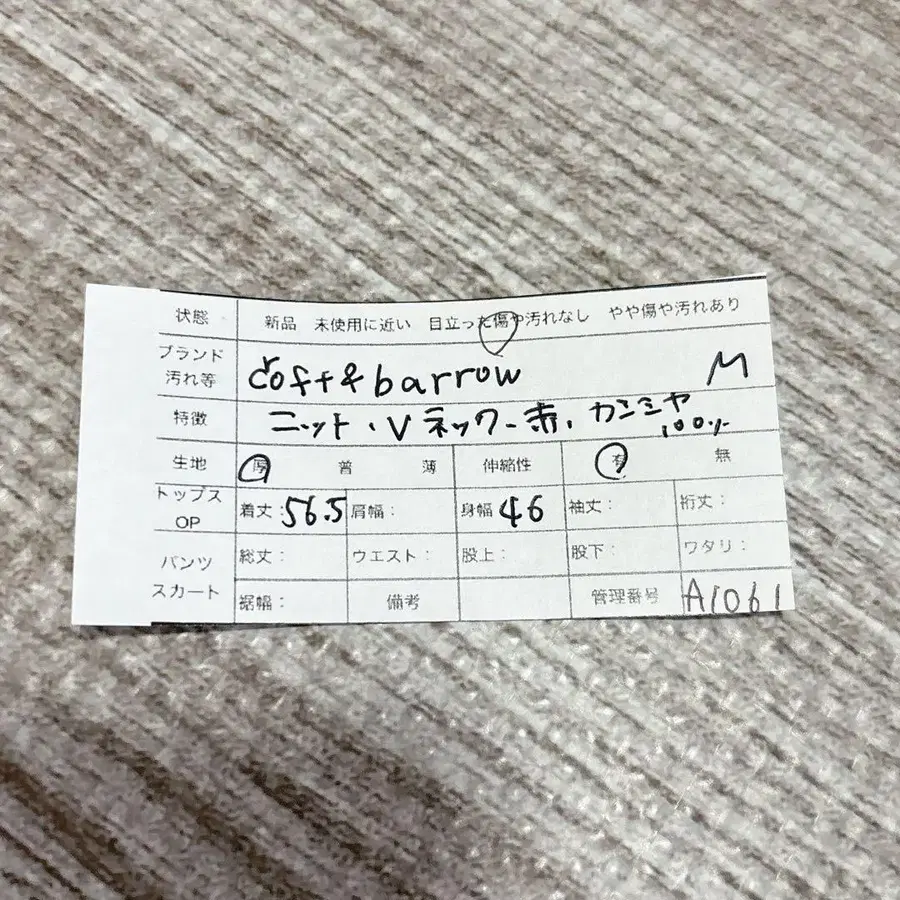 状態 新品 未使用に近い 目立った傷や汚れなし やや傷や汚れあり
ブランド
汚れ等 croft & barrow M
特徴 ニット・Vネック-赤、カシミヤ
100%
生地 厚 普 薄 伸縮性 有 無
トップス
OP 着丈: 56.5 肩幅: 身幅 46 袖丈: 裄丈:
パンツ
スカート 総丈: ウエスト: 股上: 股下: ワタリ:
裾幅: 備考 管理番号 A1061